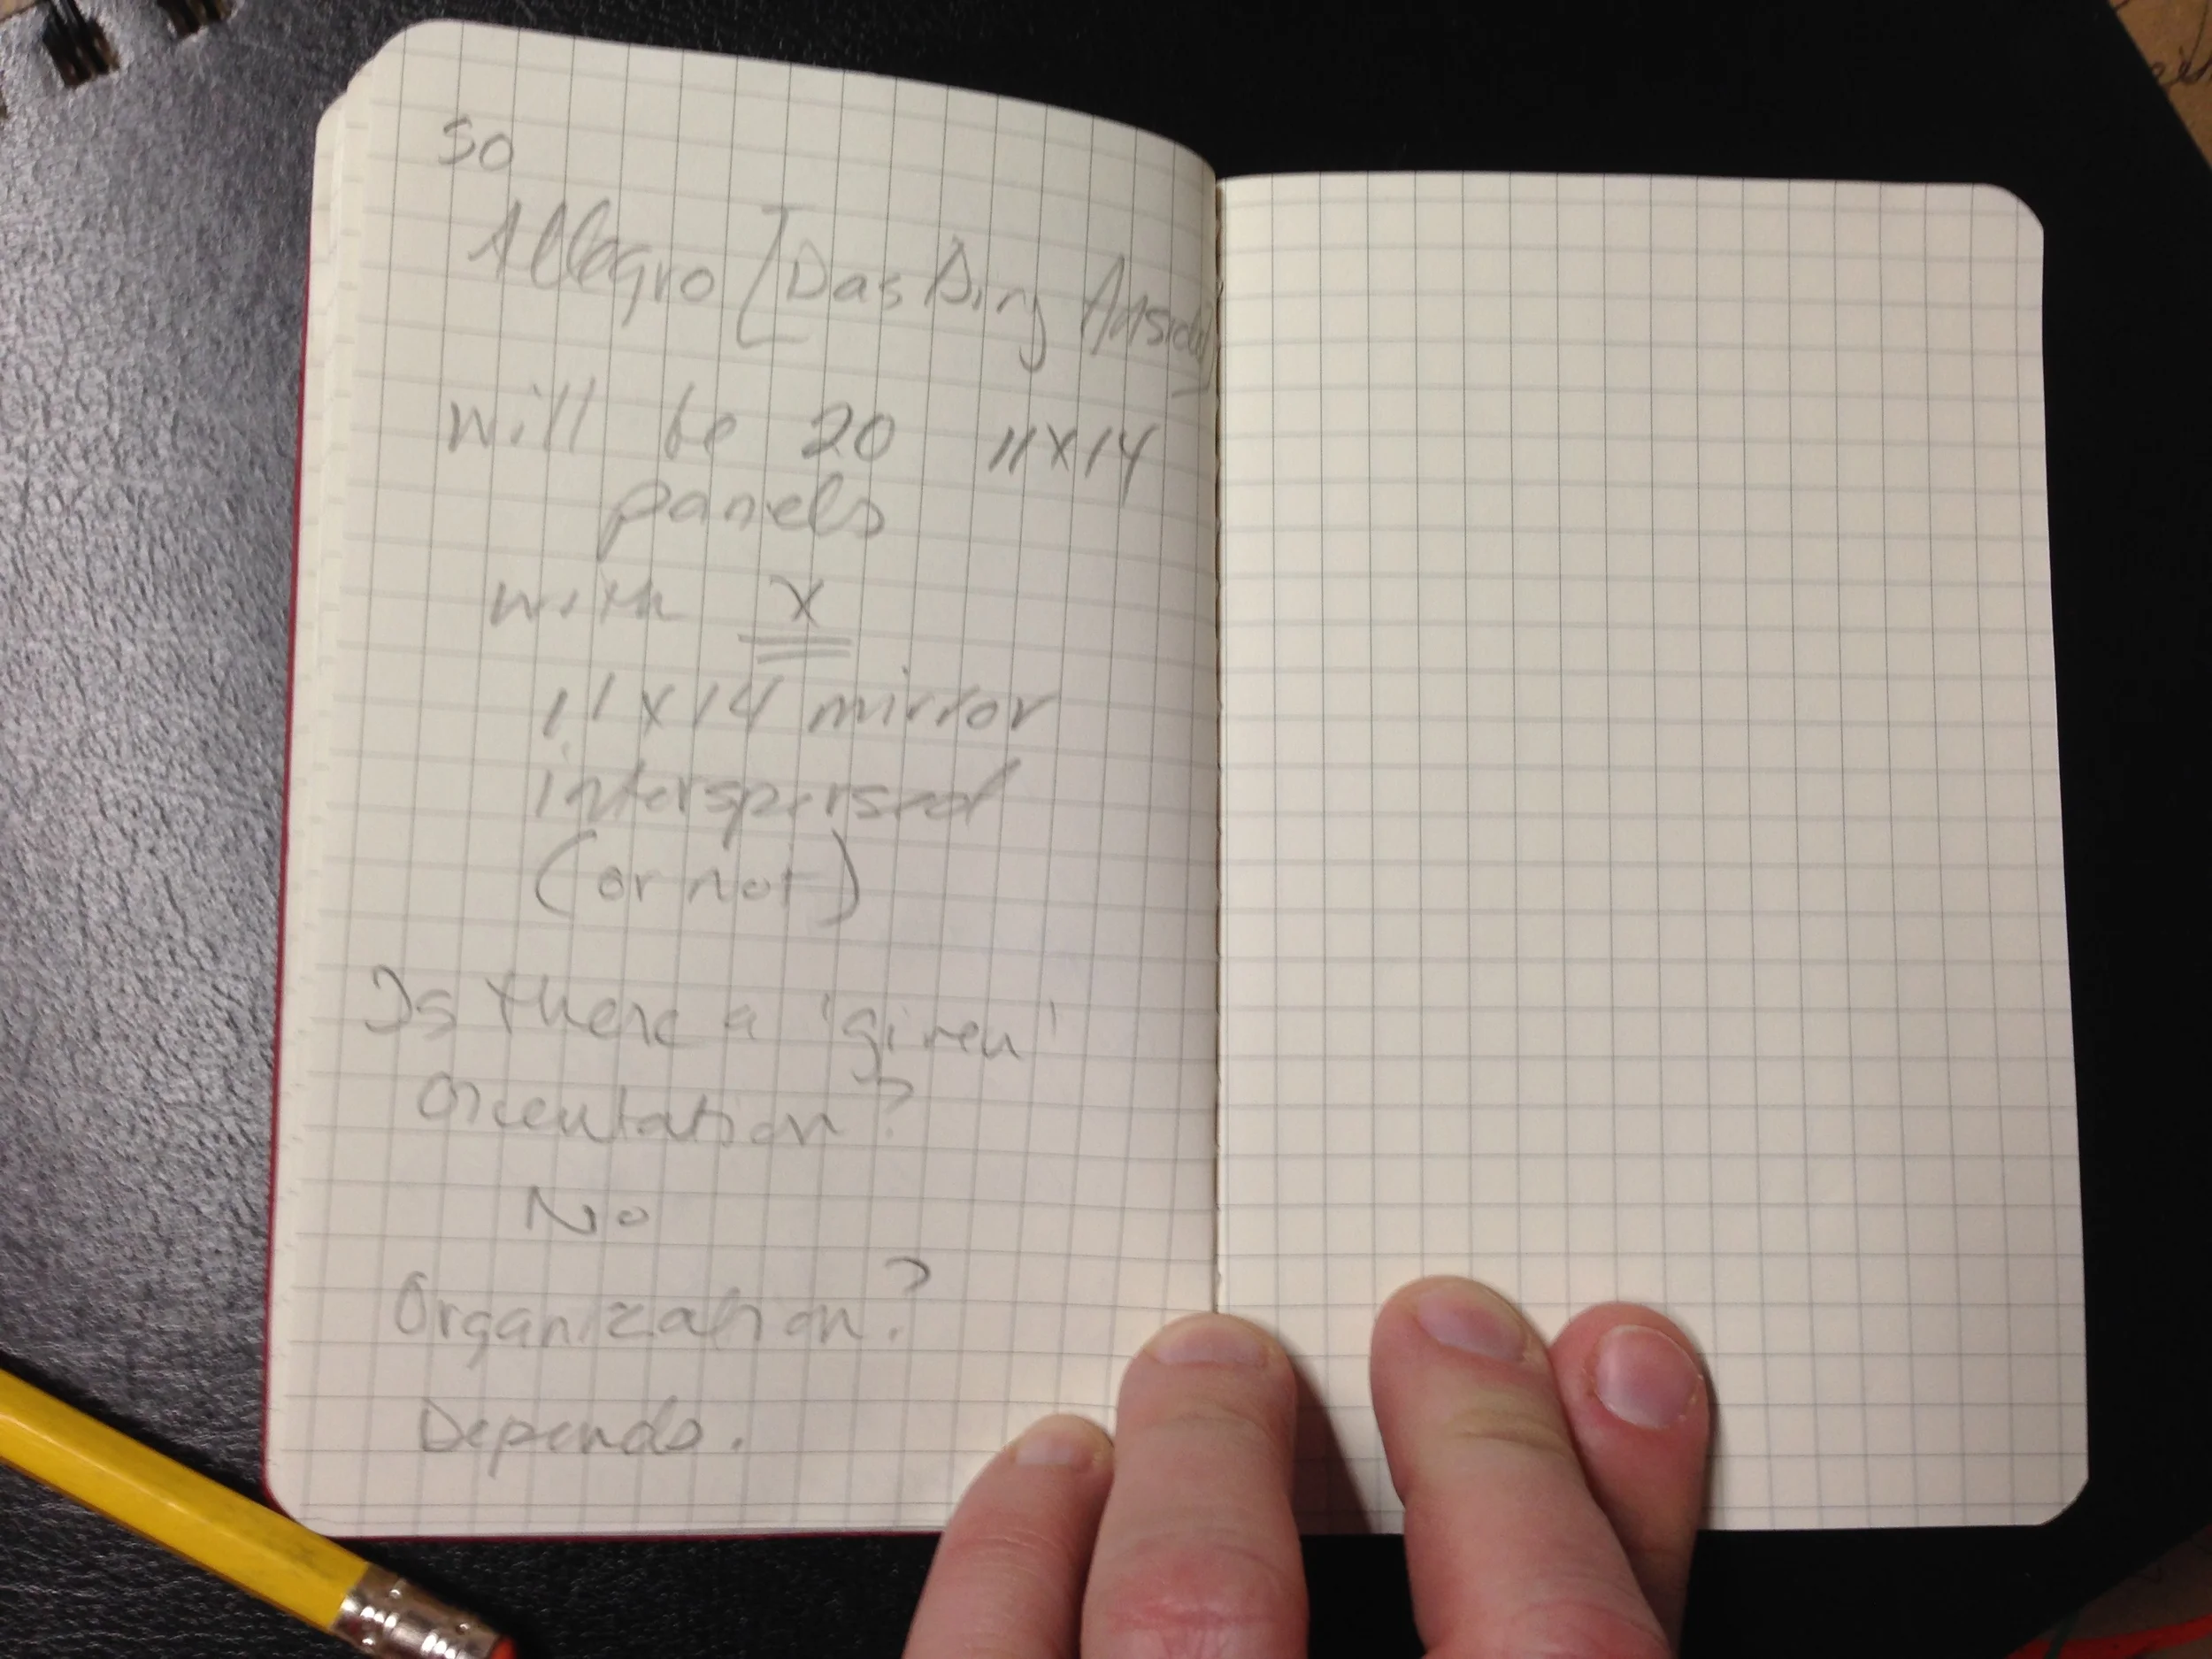 So
Allegro [Das Ding Ansich]
will be 20 11x14
panels
with X
11x14 mirror
interspersed
(or not)
Is there a 'given'
Orientation?
No
Organization?
Depends.